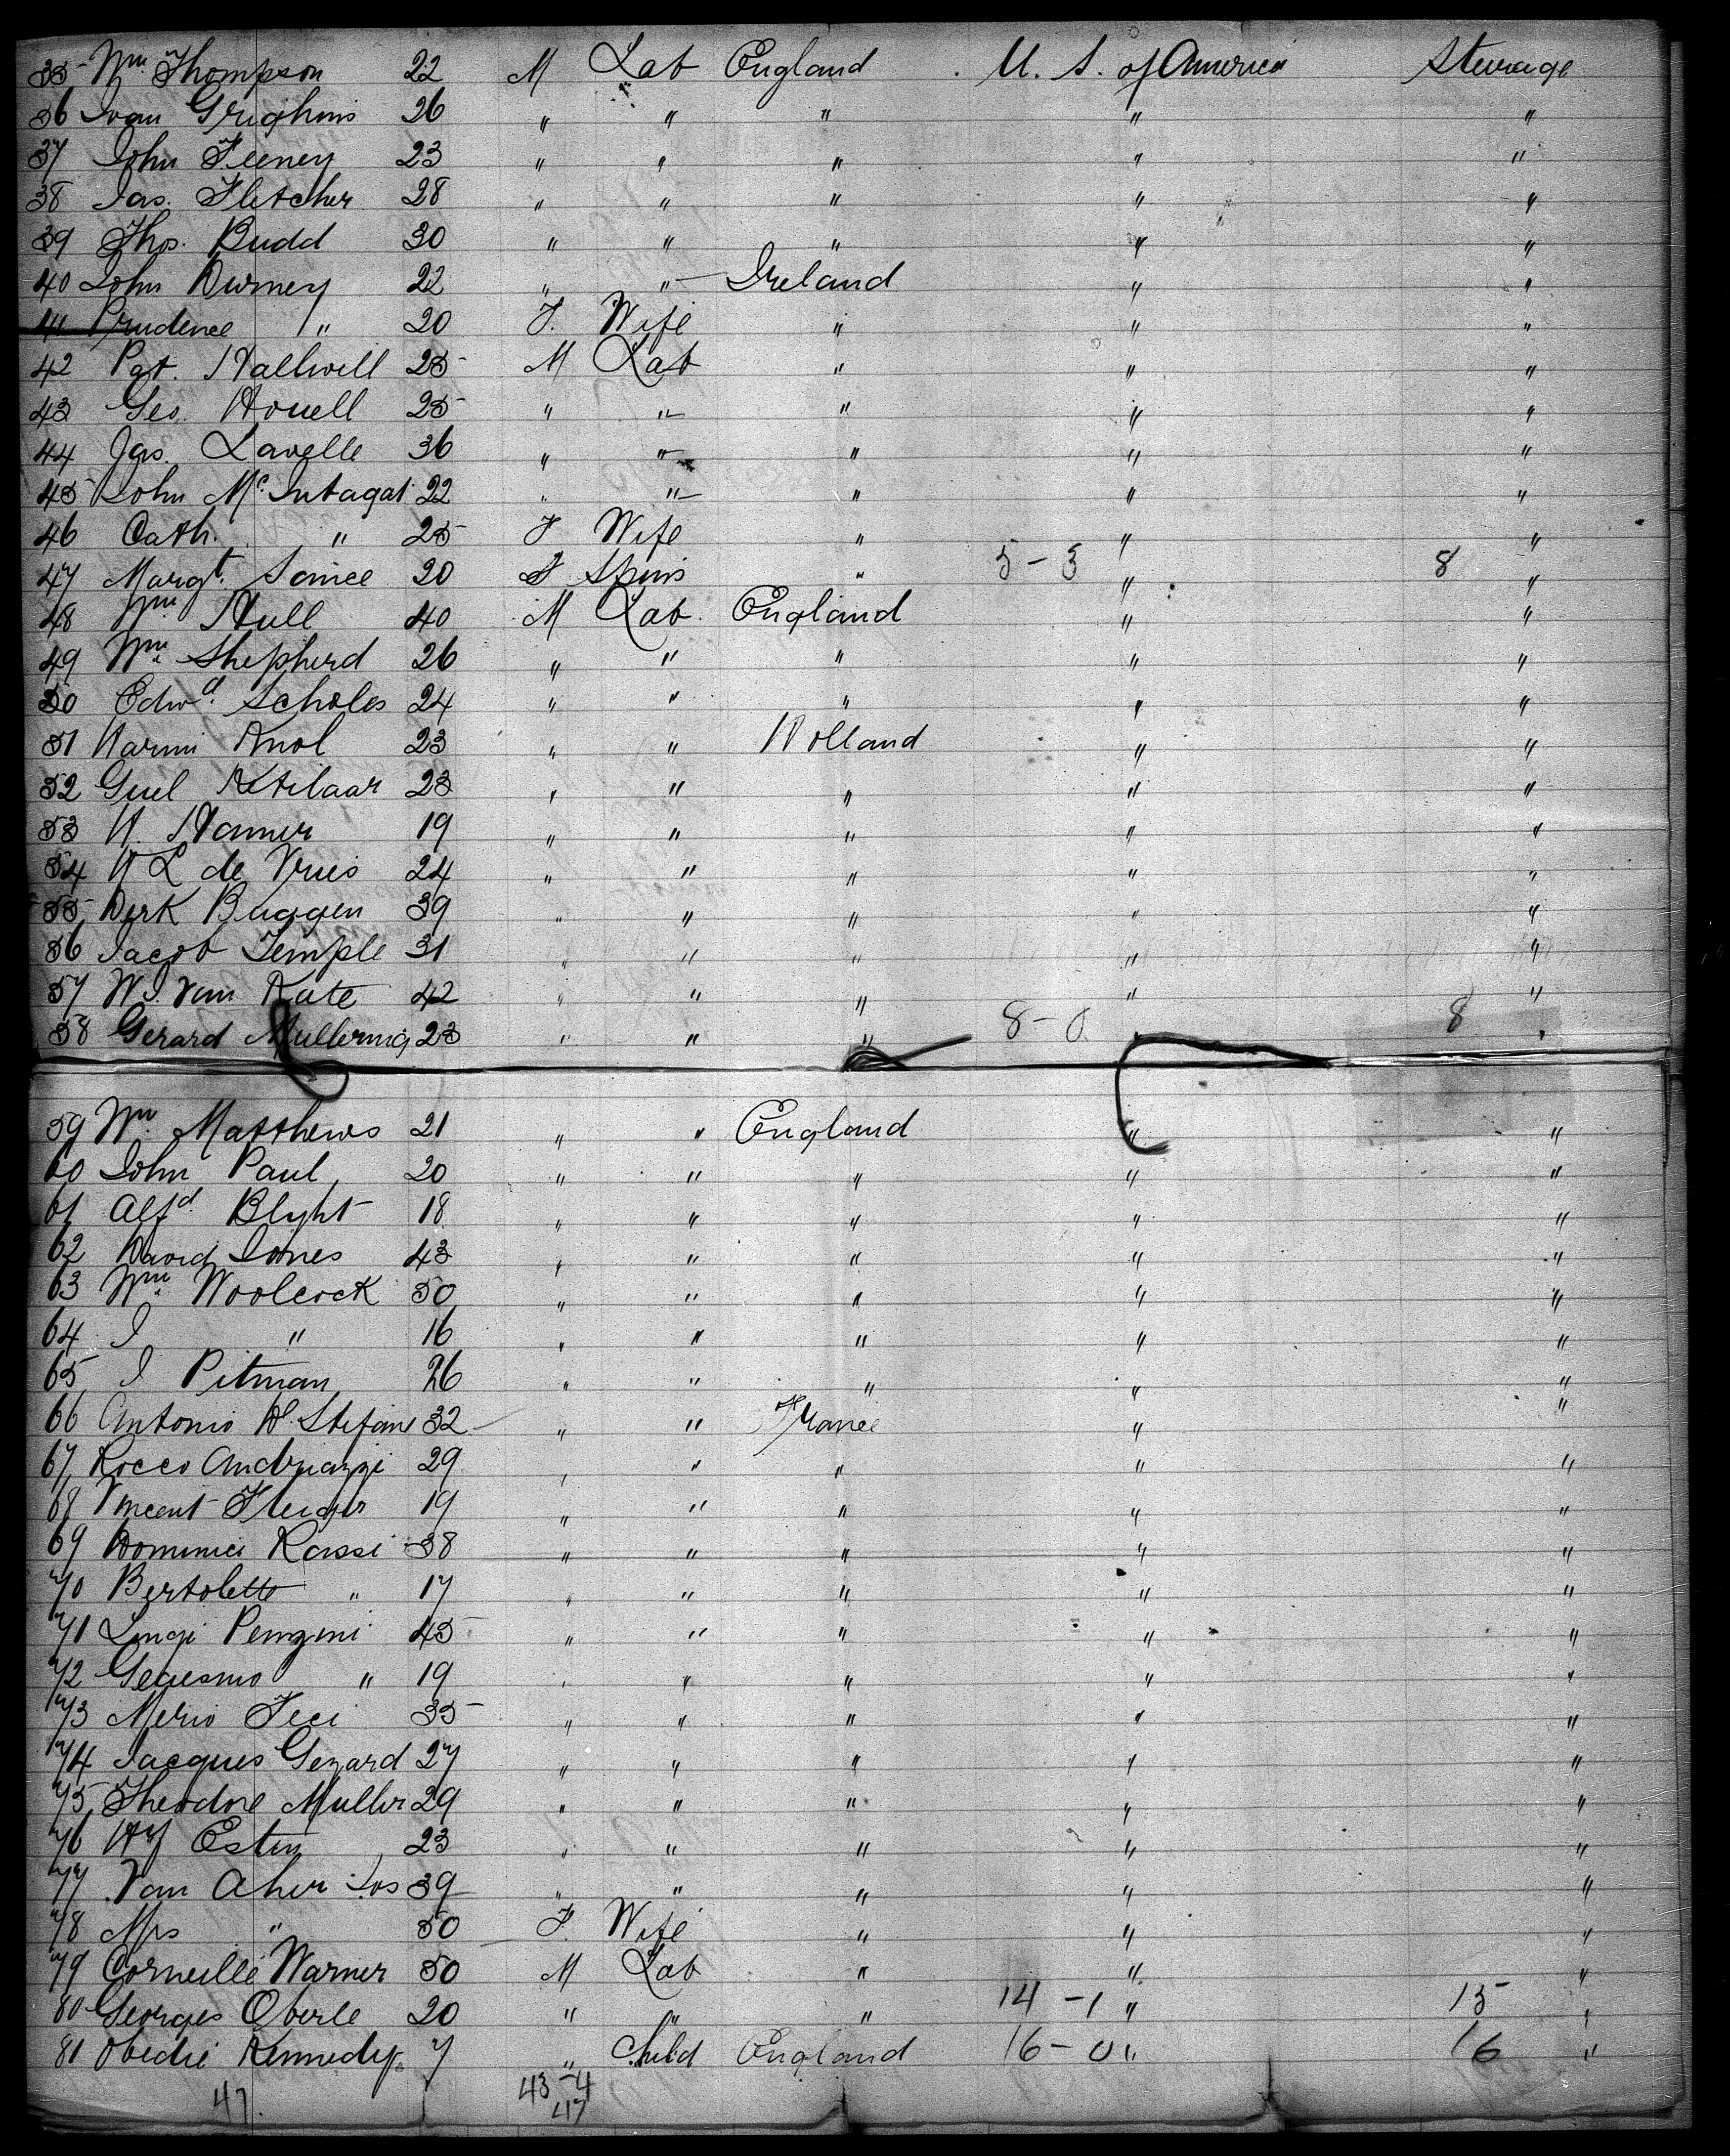 35 Wm. Thompson 22 M Lab England U. S. of America Steerage
36 Ivan 26 " " " " "
37 John Feeney 23 " " " " "
38 Jas. Fletcher 28 " " " " "
39 Thos. Budd 30 " " " " "
40 John Durney 22 " " Ireland " "
41 Prudence " 20 F. Wife " " "
42 Pat. Hallwill 25 M Lab " " "
43 Geo. Howell 25 " " " " "
44 Jas. Lavelle 36 " " " " "
45 John 22 " " " " "
46 Cath. " 25 F Wife " " "
47 Margt. 20 F Spins " 5-3 " 8 "
48 Wm Hull 40 M Lab. England " "
49 Wm. Shepherd 26 " " " " "
50 Edwd. Scholes 24 " " " " "
51 Harmi Knol 23 " " Holland " "
52 23 " " " " "
53 H. Hamer 19 " " " " "
54 H L de Vries 24 " " " " "
55 Derk Buggen 39 " " " " "
56 Jacob Temple 31 " " " " "
57 W. J. van Kate 42 " " " " "
58 Gerard Mullering 23 " " " 8-0 " 8 "
59 Wm. Matthews 21 " " England " "
60 John Paul 20 " " " " "
61 Alfd. Blyht 18 " " " " "
62 David Jones 43 " " " " "
63 Wm. Woolcock 50 " " " " "
64 J " 16 " " " " "
65 J Pitman 26 " " " " "
66 Antonio Stefani 32 " " France " "
67 Rocco Andriazzi 29 " " " " "
68 Vincent 19 " " " " "
69 Dominici Rossi 38 " " " " "
70 Bertoletto " 17 " " " " "
71 Luigi 45 " " " " "
72 " 19 " " " " "
73 Merio Feci 35 " " " " "
74 Jacques Gerard 27 " " " " "
75 Theodore Muller 29 " " " " "
76 Hy Estin 23 " " " " "
77 Van Aher Jos 39 " " " " "
78 Mrs " 50 F. Wife " " "
79 Corneille Warner 50 M Lab " " "
80 Georges Oberle 20 " " " 14-1 " 15 "
81 Obedie Kennedy 7 " Child England 16-0 " 16 "
47. 43-4
47